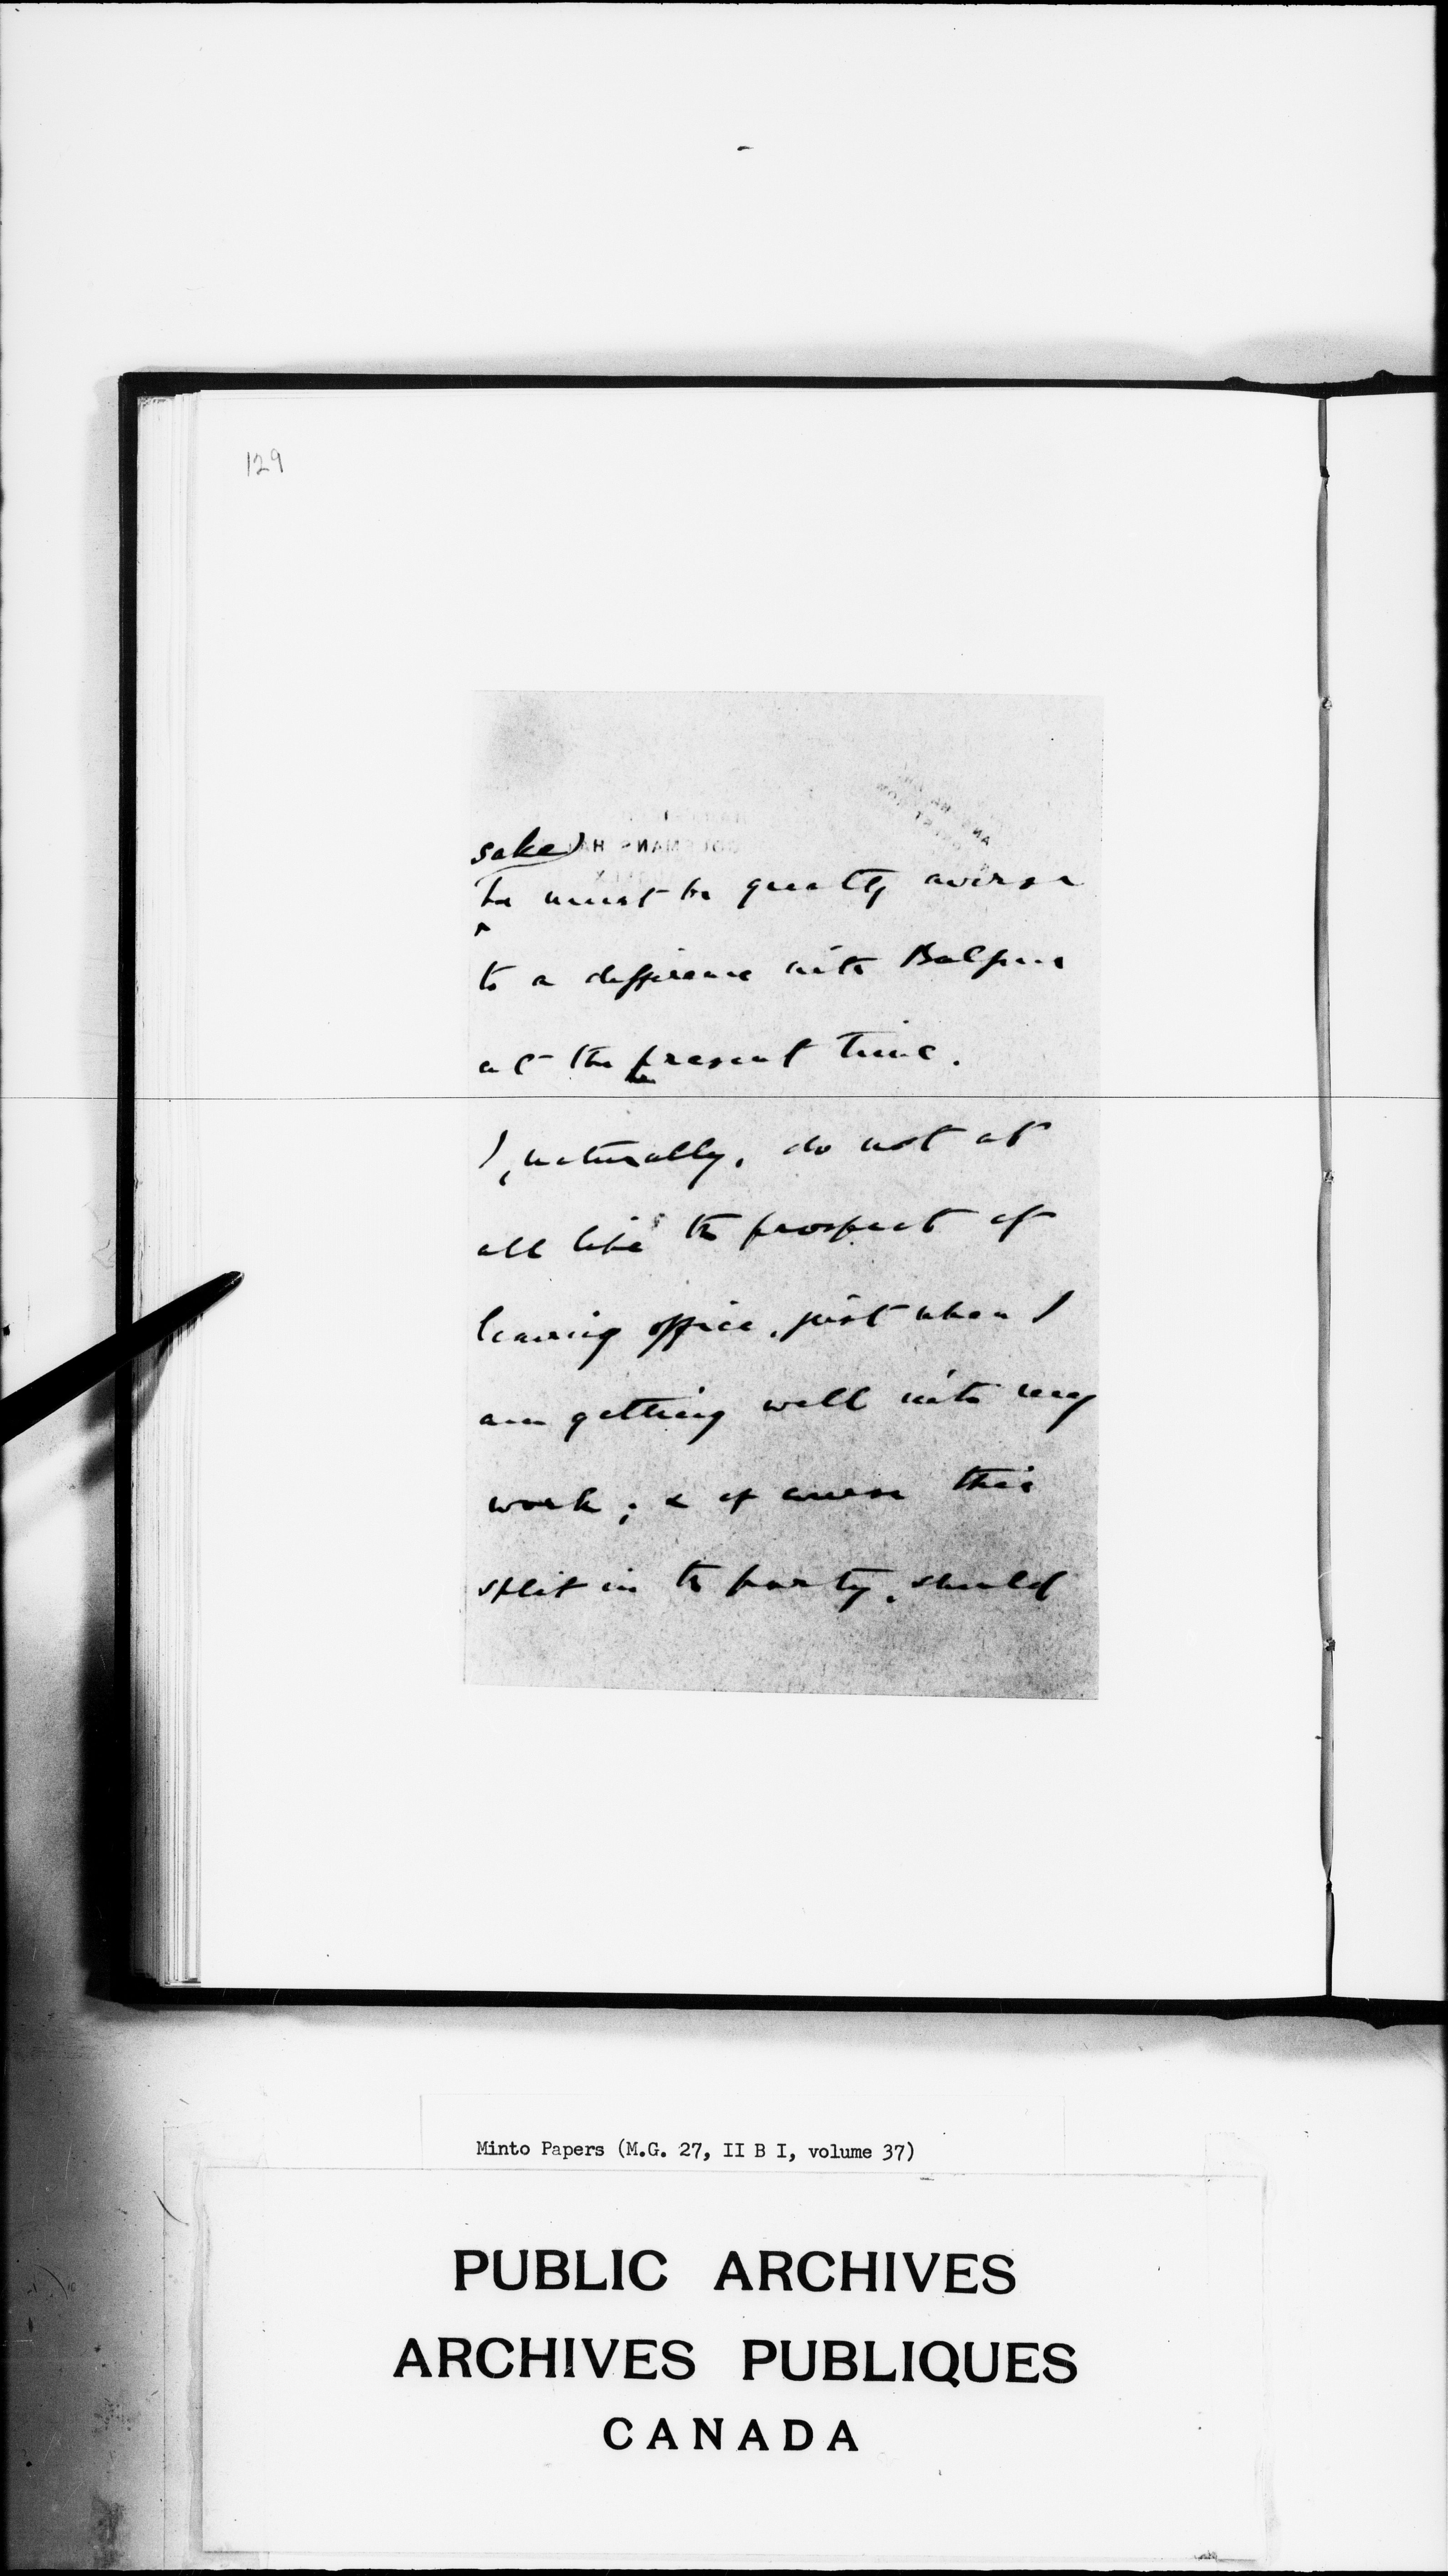 129
sake)
he must be greatly averse
to a difference with Balfour
at the present time.
I, naturally, do not at
all like the prospect of
leaving office, just when I
am getting well into my
work; & of course this
split in the party, should
Minto Papers (M.G. 27, II B I, volume 37)
PUBLIC ARCHIVES
ARCHIVES PUBLIQUES
CANADA